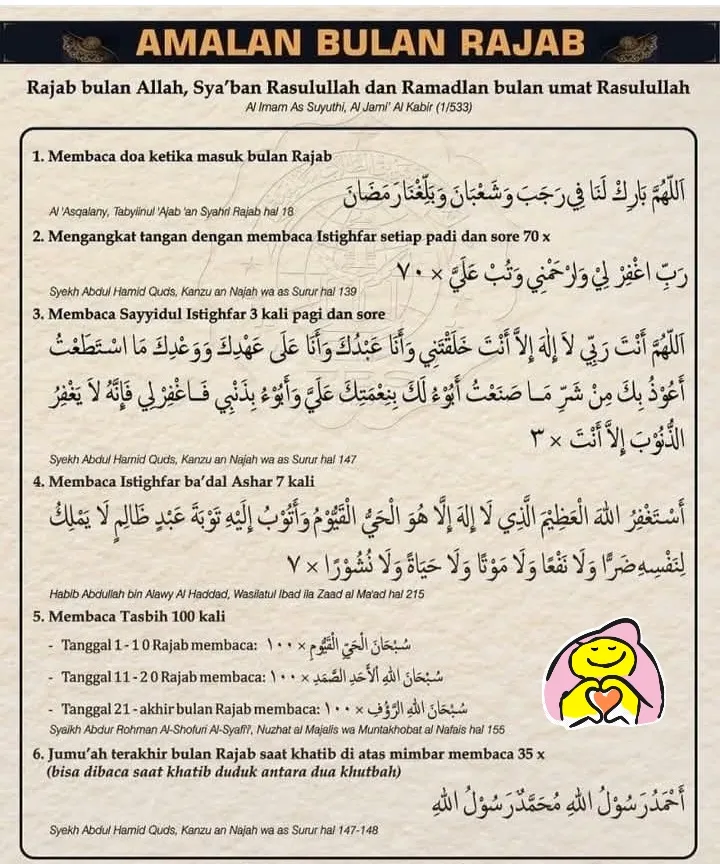 AMALAN BULAN RAJAB
Rajab bulan Allah, Sya'ban Rasulullah dan Ramadlan bulan umat Rasulullah
Al Imam As Suyuthi, Al Jami' Al Kabir (1/533)
1. Membaca doa ketika masuk bulan Rajab
اَللّٰهُمَّ بَارِكْ لَنَا فِي رَجَبَ وَشَعْبَانَ وَبَلِّغْنَا رَمَضَانَ
Al 'Asqalany, Tabyiinul 'Ajab 'an Syahri Rajab hal 18
2. Mengangkat tangan dengan membaca Istighfar setiap padi dan sore 70 x
رَبِّ اغْفِرْ لِيْ وَارْحَمْنِي وَتُبْ عَلَيَّ × ٧٠
Syekh Abdul Hamid Quds, Kanzu an Najah wa as Surur hal 139
3. Membaca Sayyidul Istighfar 3 kali pagi dan sore
اَللّٰهُمَّ أَنْتَ رَبِّي لَا إِلٰهَ إِلَّا أَنْتَ خَلَقْتَنِي وَأَنَا عَبْدُكَ وَأَنَا عَلَى عَهْدِكَ وَوَعْدِكَ مَا اسْتَطَعْتُ
أَعُوْذُ بِكَ مِنْ شَرِّ مَا صَنَعْتُ أَبُوْءُ لَكَ بِنِعْمَتِكَ عَلَيَّ وَأَبُوْءُ بِذَنْبِي فَاغْفِرْ لِي فَإِنَّهُ لَا يَغْفِرُ
الذُّنُوْبَ إِلَّا أَنْتَ × ٣
Syekh Abdul Hamid Quds, Kanzu an Najah wa as Surur hal 147
4. Membaca Istighfar ba'dal Ashar 7 kali
أَسْتَغْفِرُ اللهَ الْعَظِيْمَ الَّذِي لَا إِلٰهَ إِلَّا هُوَ الْحَيُّ الْقَيُّوْمُ وَأَتُوْبُ إِلَيْهِ تَوْبَةَ عَبْدٍ ظَالِمٍ لَا يَمْلِكُ
لِنَفْسِهِ ضَرًّا وَلَا نَفْعًا وَلَا مَوْتًا وَلَا حَيَاةً وَلَا نُشُوْرًا × ٧
Habib Abdullah bin Alawy Al Haddad, Wasilatul Ibad ila Zaad al Ma'ad hal 215
5. Membaca Tasbih 100 kali
- Tanggal 1-10 Rajab membaca: سُبْحَانَ الْحَيِّ الْقَيُّوْمِ × ١٠٠
- Tanggal 11-20 Rajab membaca: سُبْحَانَ اللهِ الْأَحَدِ الصَّمَدِ × ١٠٠
- Tanggal 21-akhir bulan Rajab membaca: سُبْحَانَ اللهِ الرَّؤُفِ × ١٠٠
Syaikh Abdur Rohman Al-Shofuri Al-Syafi'i, Nuzhat al Majalis wa Muntakhobat al Nafais hal 155
6. Jumu'ah terakhir bulan Rajab saat khatib di atas mimbar membaca 35 x
(bisa dibaca saat khatib duduk antara dua khutbah)
أَحْمَدُ رَسُوْلُ اللهِ مُحَمَّدٌ رَسُوْلُ اللهِ
Syekh Abdul Hamid Quds, Kanzu an Najah wa as Surur hal 147-148